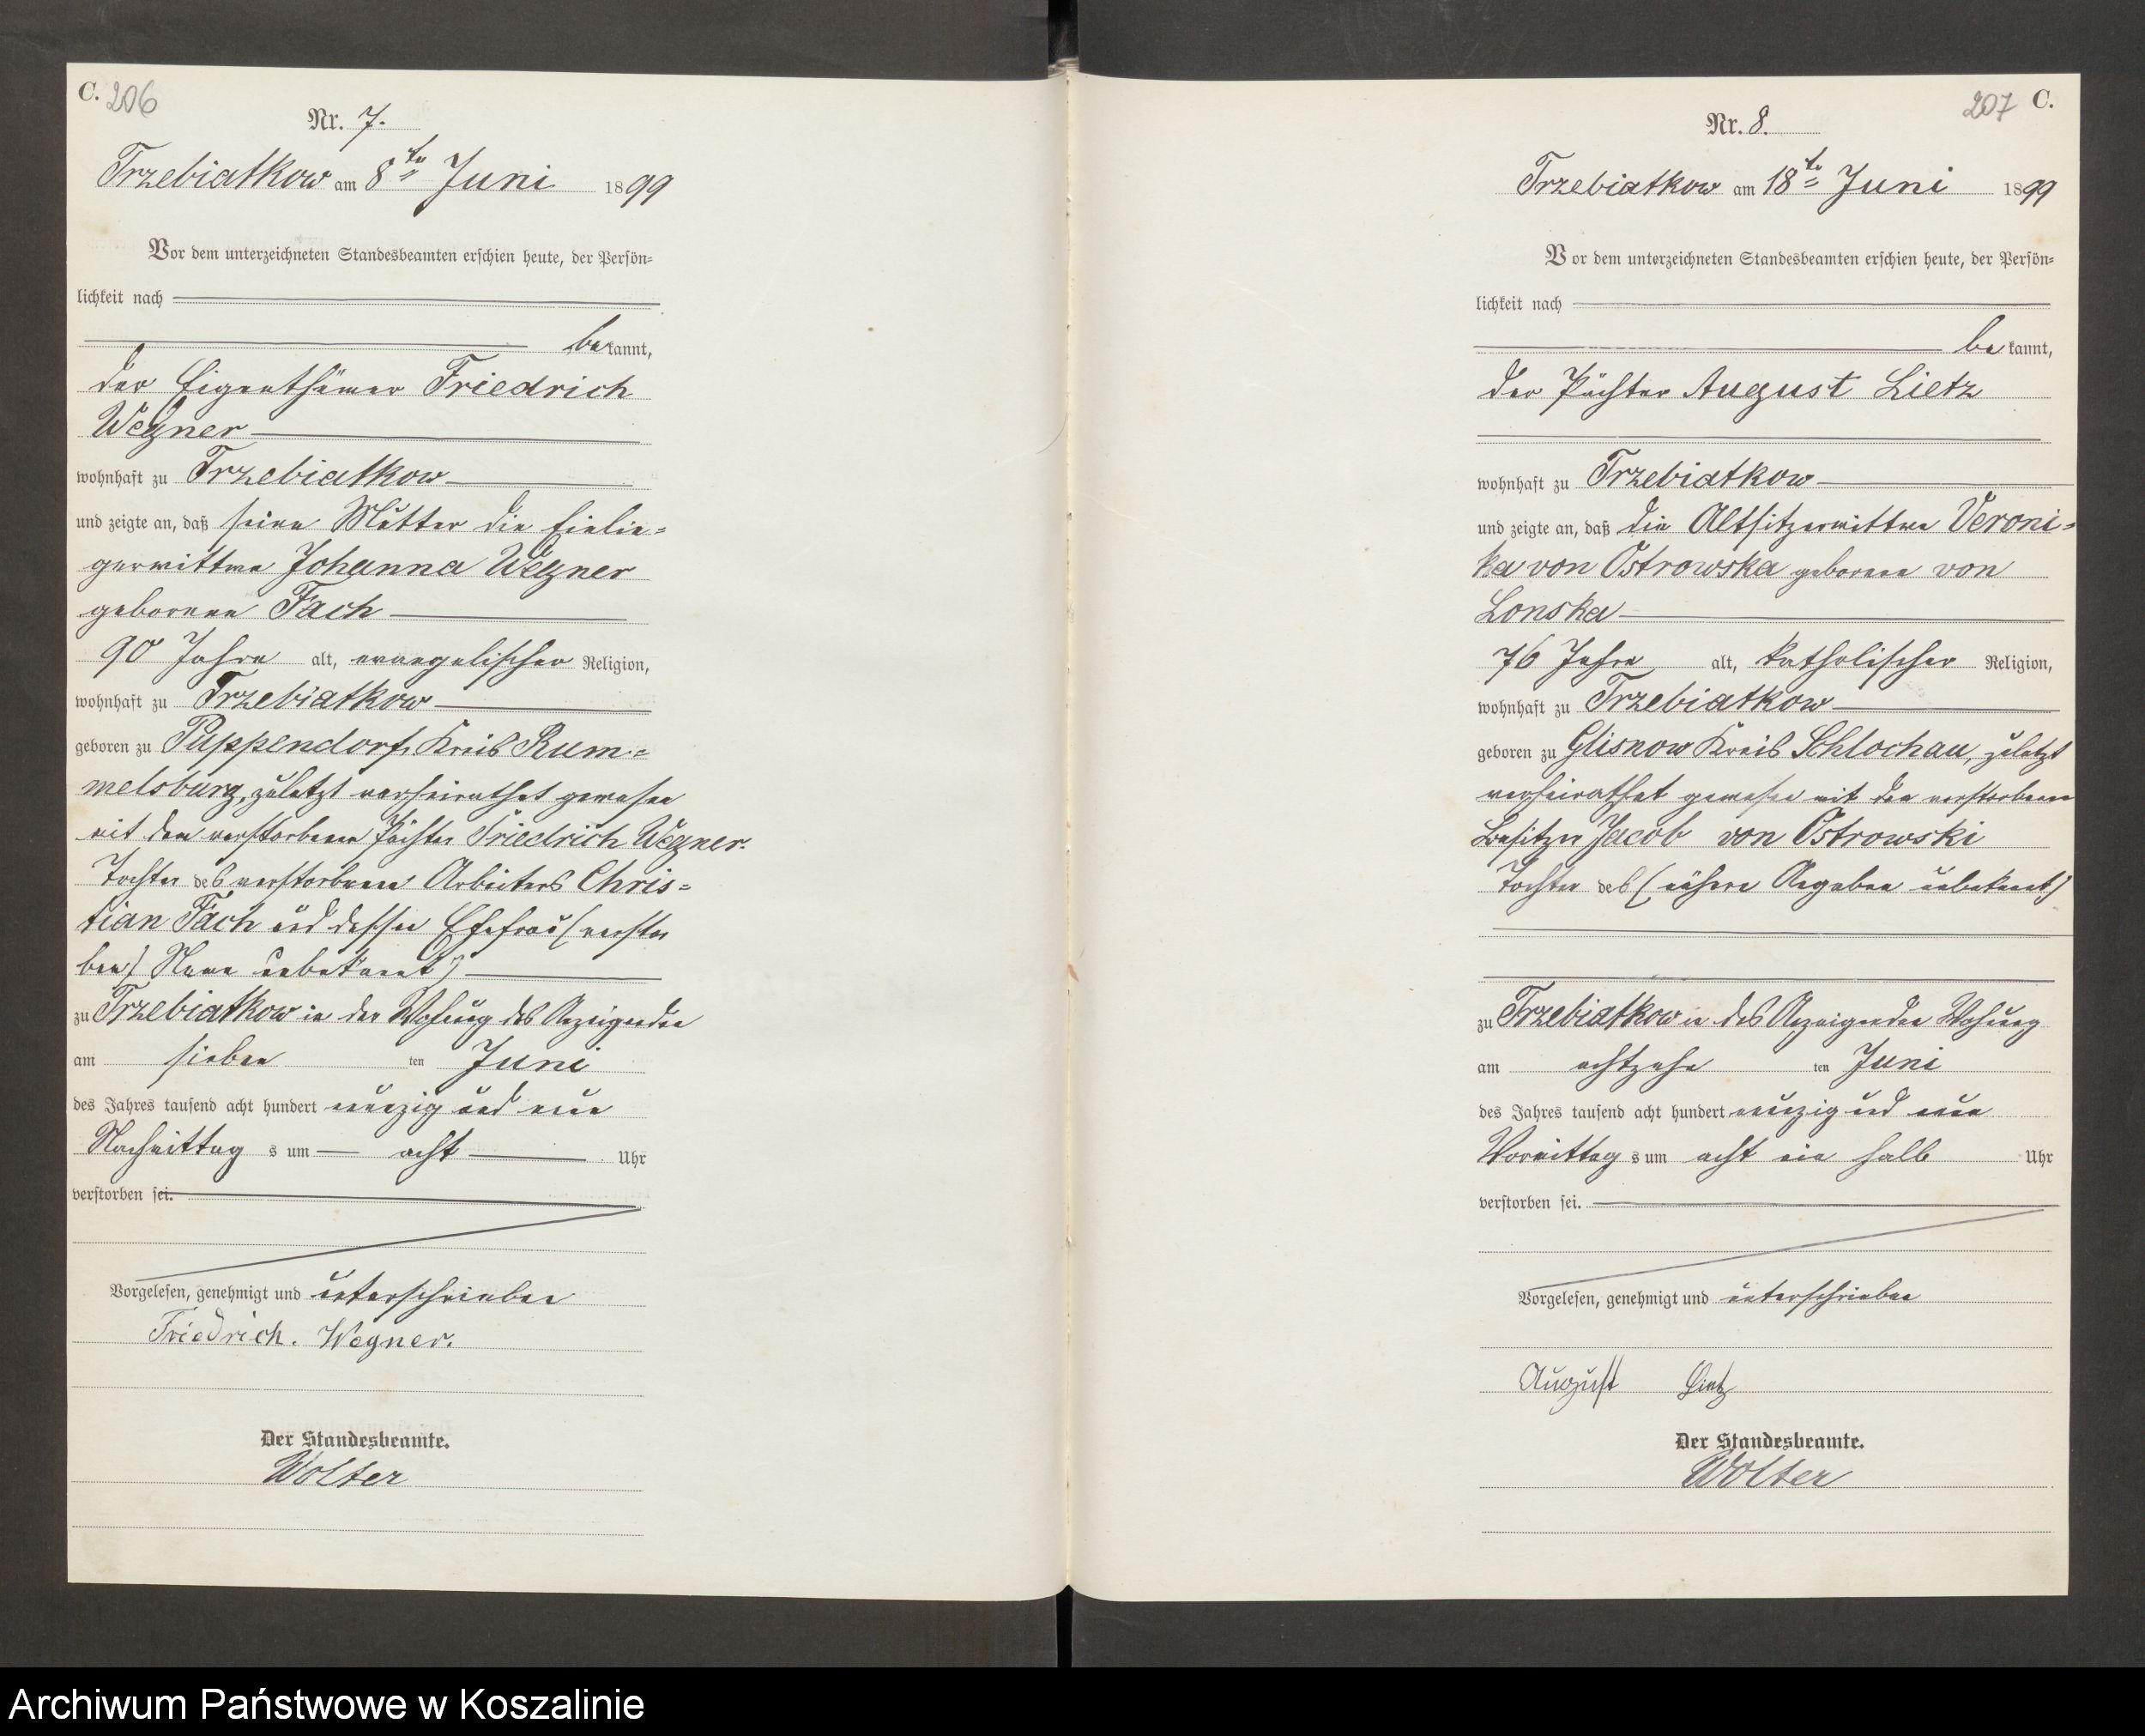 C. 206
Nr. 7.
Trzebiatkow am 8ten Juni 1899
Vor dem unterzeichneten Standesbeamten erschien heute, der Persön=
lichkeit nach
be kannt,
der Eigenthümer Friedrich
Wegner
wohnhaft zu Trzebiatkow
und zeigte an, daß seine Mutter die Einlie=
gerwittwe Johanna Wegner
geborene Fach
90 Jahre alt, evangelischer Religion,
wohnhaft zu Trzebiatkow
geboren zu Puppendorf, Kreis Rum=
melsburg, zuletzt verheirathet gewesen
mit dem verstorbenen Pächter Friedrich Wegner.
Tochter des verstorbenen Arbeiters Chris=
tian Fach und dessen Ehefrau (verstor
ben) Name unbekannt)
zu Trzebiatkow in der Wohnung des Anzeigenden
am sieben ten Juni
des Jahres tausend acht hundert neunzig und neun
Nachmittag s um acht Uhr
verstorben sei.
Vorgelesen, genehmigt und unterschrieben
Friedrich. Wegner.
Der Standesbeamte.
Wolter
207 C.
Nr. 8.
Trzebiatkow am 18ten Juni 1899
Vor dem unterzeichneten Standesbeamten erschien heute, der Persön=
lichkeit nach
be kannt,
der Pächter August Lietz
wohnhaft zu Trzebiatkow
und zeigte an, daß die Altsitzerwittwe Veroni=
ka von Ostrowska geborene von
Lonska
76 Jahre alt, katholischer Religion,
wohnhaft zu Trzebiatkow
geboren zu Glisnow Kreis Schlochau, zuletzt
verheirathet gewesen mit den verstorbenen
Besitzer Jacob von Ostrowski
Tochter des (nähere Angaben unbekannt)
zu Trzebiatkow in des Anzeigenden Wohnung
am achtzehn ten Juni
des Jahres tausend acht hundert neunzig und neun
Vormittag s um acht ein halb Uhr
verstorben sei.
Vorgelesen, genehmigt und unterschrieben
August Lietz
Der Standesbeamte.
Wolter
Archiwum Państwowe w Koszalinie